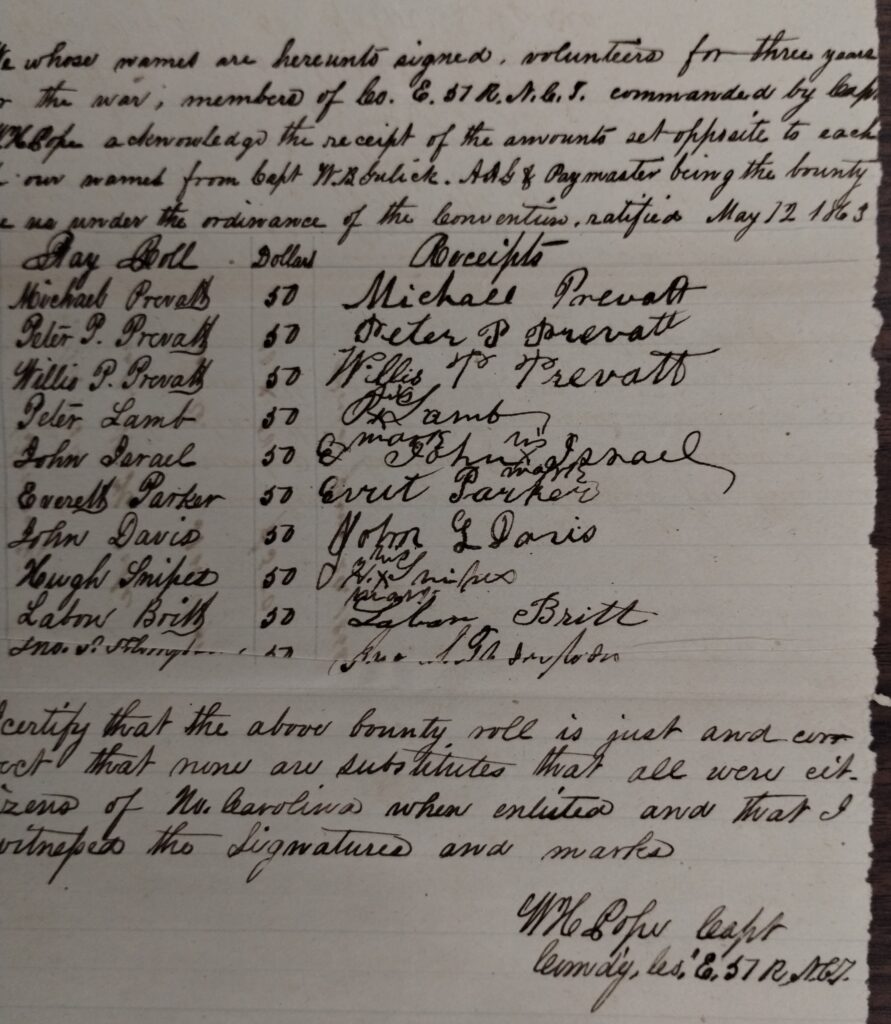 e whose names are hereunto signed, volunteers for three years
r the war, members of Co. E. 57 R. N. C. T. commanded by Capt
WH Pope acknowledge the receipt of the amounts set opposite to each
our names from Capt W. B. Gulick. A A G & Paymaster being the bounty
e us under the ordinance of the Convention, ratified May 12 1863
Pay Roll Dollars Receipts
Michael Prevatt 50 Michael Prevatt
Peter P. Prevatt 50 Peter P Prevatt
Willis P. Prevatt 50 Willis P Prevatt
his
Peter Lamb 50 P x Lamb
mark his
John Israel 50 John x Israel
mark
Everett Parker 50 Evrit Parker
John Davis 50 John G Davis
his
Hugh Snipes 50 H. x Snipes
mark
Labon Britt 50 Laban Britt
Jno. 50
certify that the above bounty roll is just and corr
ect that none are substitutes that all were cit-
izens of No. Carolina when enlisted and that I
witnessed the Signatures and marks
WH Pope Capt
Comdg. Co. E. 57 R. N.C.T.